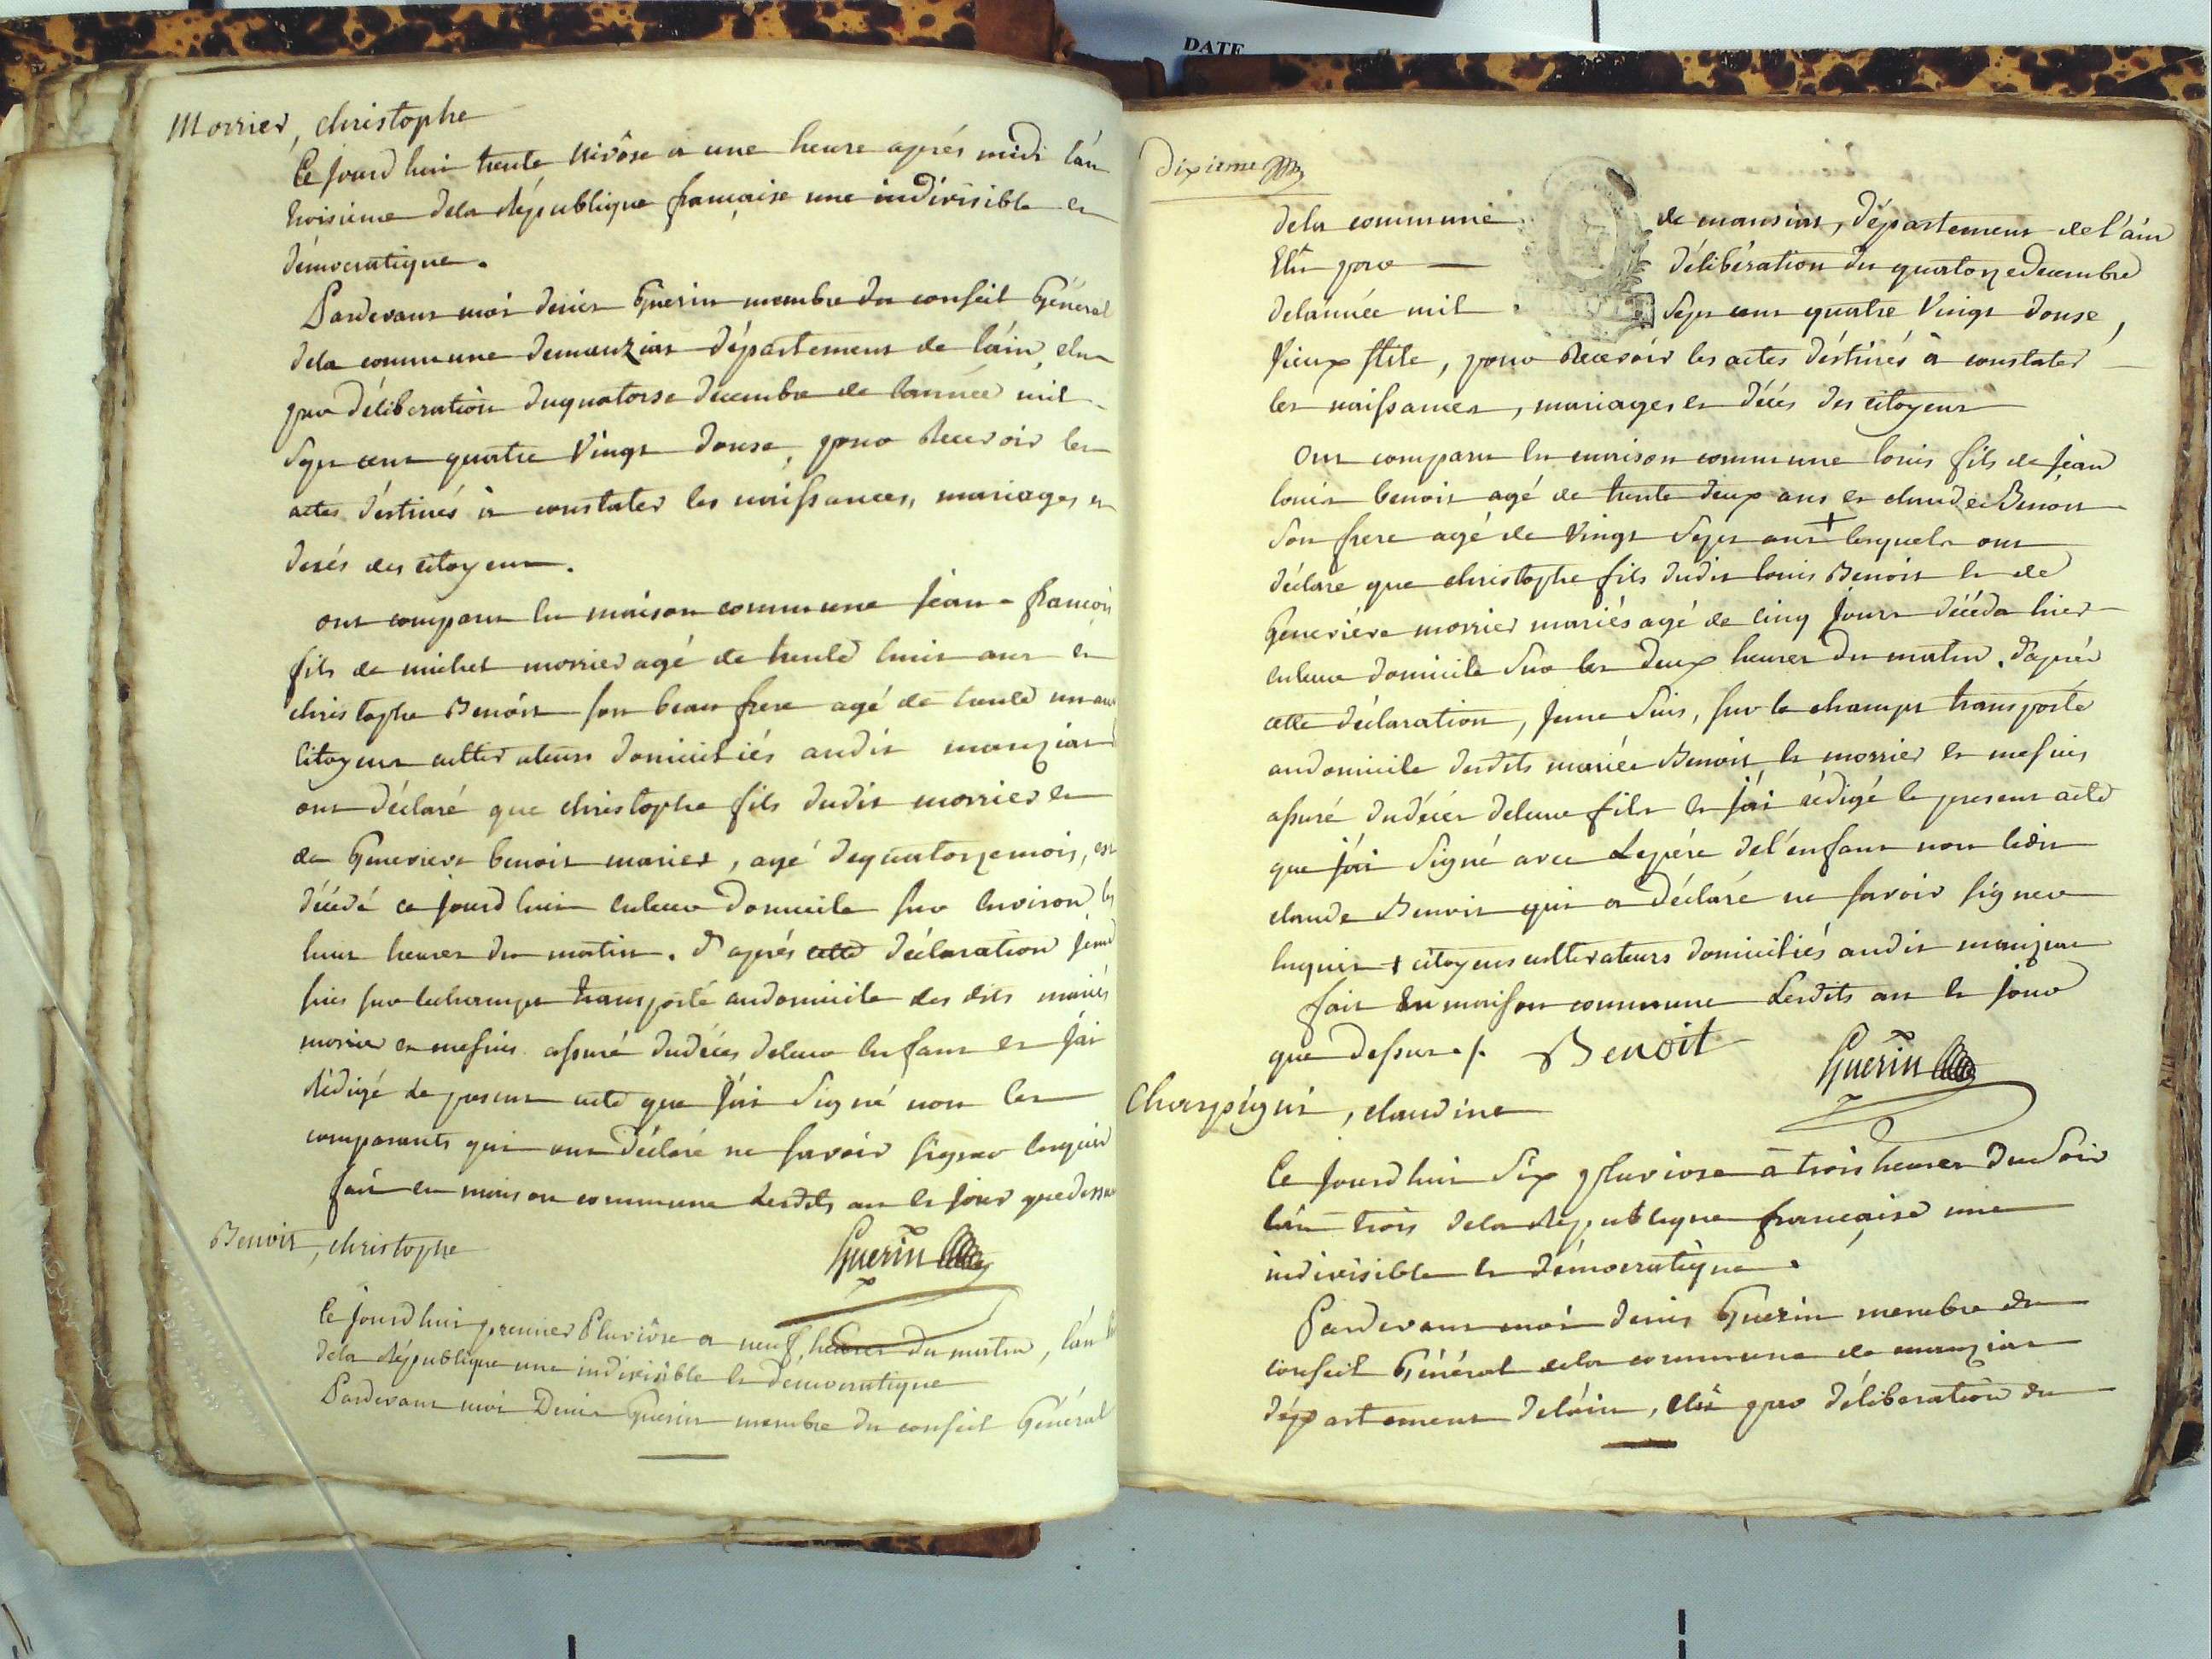 Morrier, christophe
Ce jourd'hui trente Nivôse a une heure après midi l'an
troisième dela République française une indivisible et
démocratique.
Pardevant moi denis Guerin membre du conseil Général
dela commune demanziat département de l'ain, elu
par délibération duquatorse decembre de lannée mil
sept cent quatre Vingt douse, pour Recevoir les
actes déstinés à constater les naissances, mariages et
décés des citoyens.
ont comparu en maison commune jean-françois
fils de michel morrier agé de trente huit ans et
christophe Benoit son beau frere agé de trente un ans
Citoyens cultivateurs domiciliés audit manziat
ont déclaré que christophe fils dudit morrier et
de Genevieve benoit mariés, agé dequatorzemois, est
décédé ce jourd'hui enleur domicile sur environ les
huit heures du matin. D'après cette déclaration jeme
suis sur lechamps transporté audomicile des dits mariés
morrier et mesuis assuré dudécés deleur enfant et j'ai
rédigé le present acte que j'ai Signé non les
comparants qui ont déclaré ne savoir signer enquis
fait en maison commune lesdits an et jour quedessus
Guerin
Benoit, christophe
Ce jourd'hui premier Pluviôse a neuf heures du matin, l'an
dela République une indivisible et democratique
Pardevant moi Denis Guerin membre du conseil Général
DATE
Dixieme
dela commune de mansiat, département de l'ain
Elu par délibération du quatorzedecembre
delannée mil sept cent quatre Vingt douse,
Vieux stile, pour Recevoir les actes déstinés à constater
les naissances, mariages et décés des citoyens
ont comparu en maison commune louis fils de jean
louis benoit agé de trente deux ans et claude Benoit
son frere agé de vingt sept ans + lesquels ont
déclaré que christophe fils dudit louis Benoit et de
Geneviéve morrier mariés agé de cinq jours décéda hier
enleur domicile sur les deux heures du matin. d'après
cette déclaration, jeme suis, sur le champs transporté
audomicile desdits mariés Benoit et morrier et mesuis
assuré dudécés deleur fils et j'ai rédigé le present acte
que j'ai Signé avec Lepère del'enfant non ledit
claude Benoit qui a déclaré ne savoir signer
enquis + citoyens cultivateurs domiciliés audit manziat
fait en maison commune lesdits an et jour
que dessus ./. Benoit Guerin
Charpigni, claudine
Ce jourd'hui Six pluviose à trois heures du Soir
l'an trois dela République française une
indivisible et démocratique.
Pardevant moi denis Guerin membre du
conseil Général dela commune de manziat
département del'ain, élu par délibération du